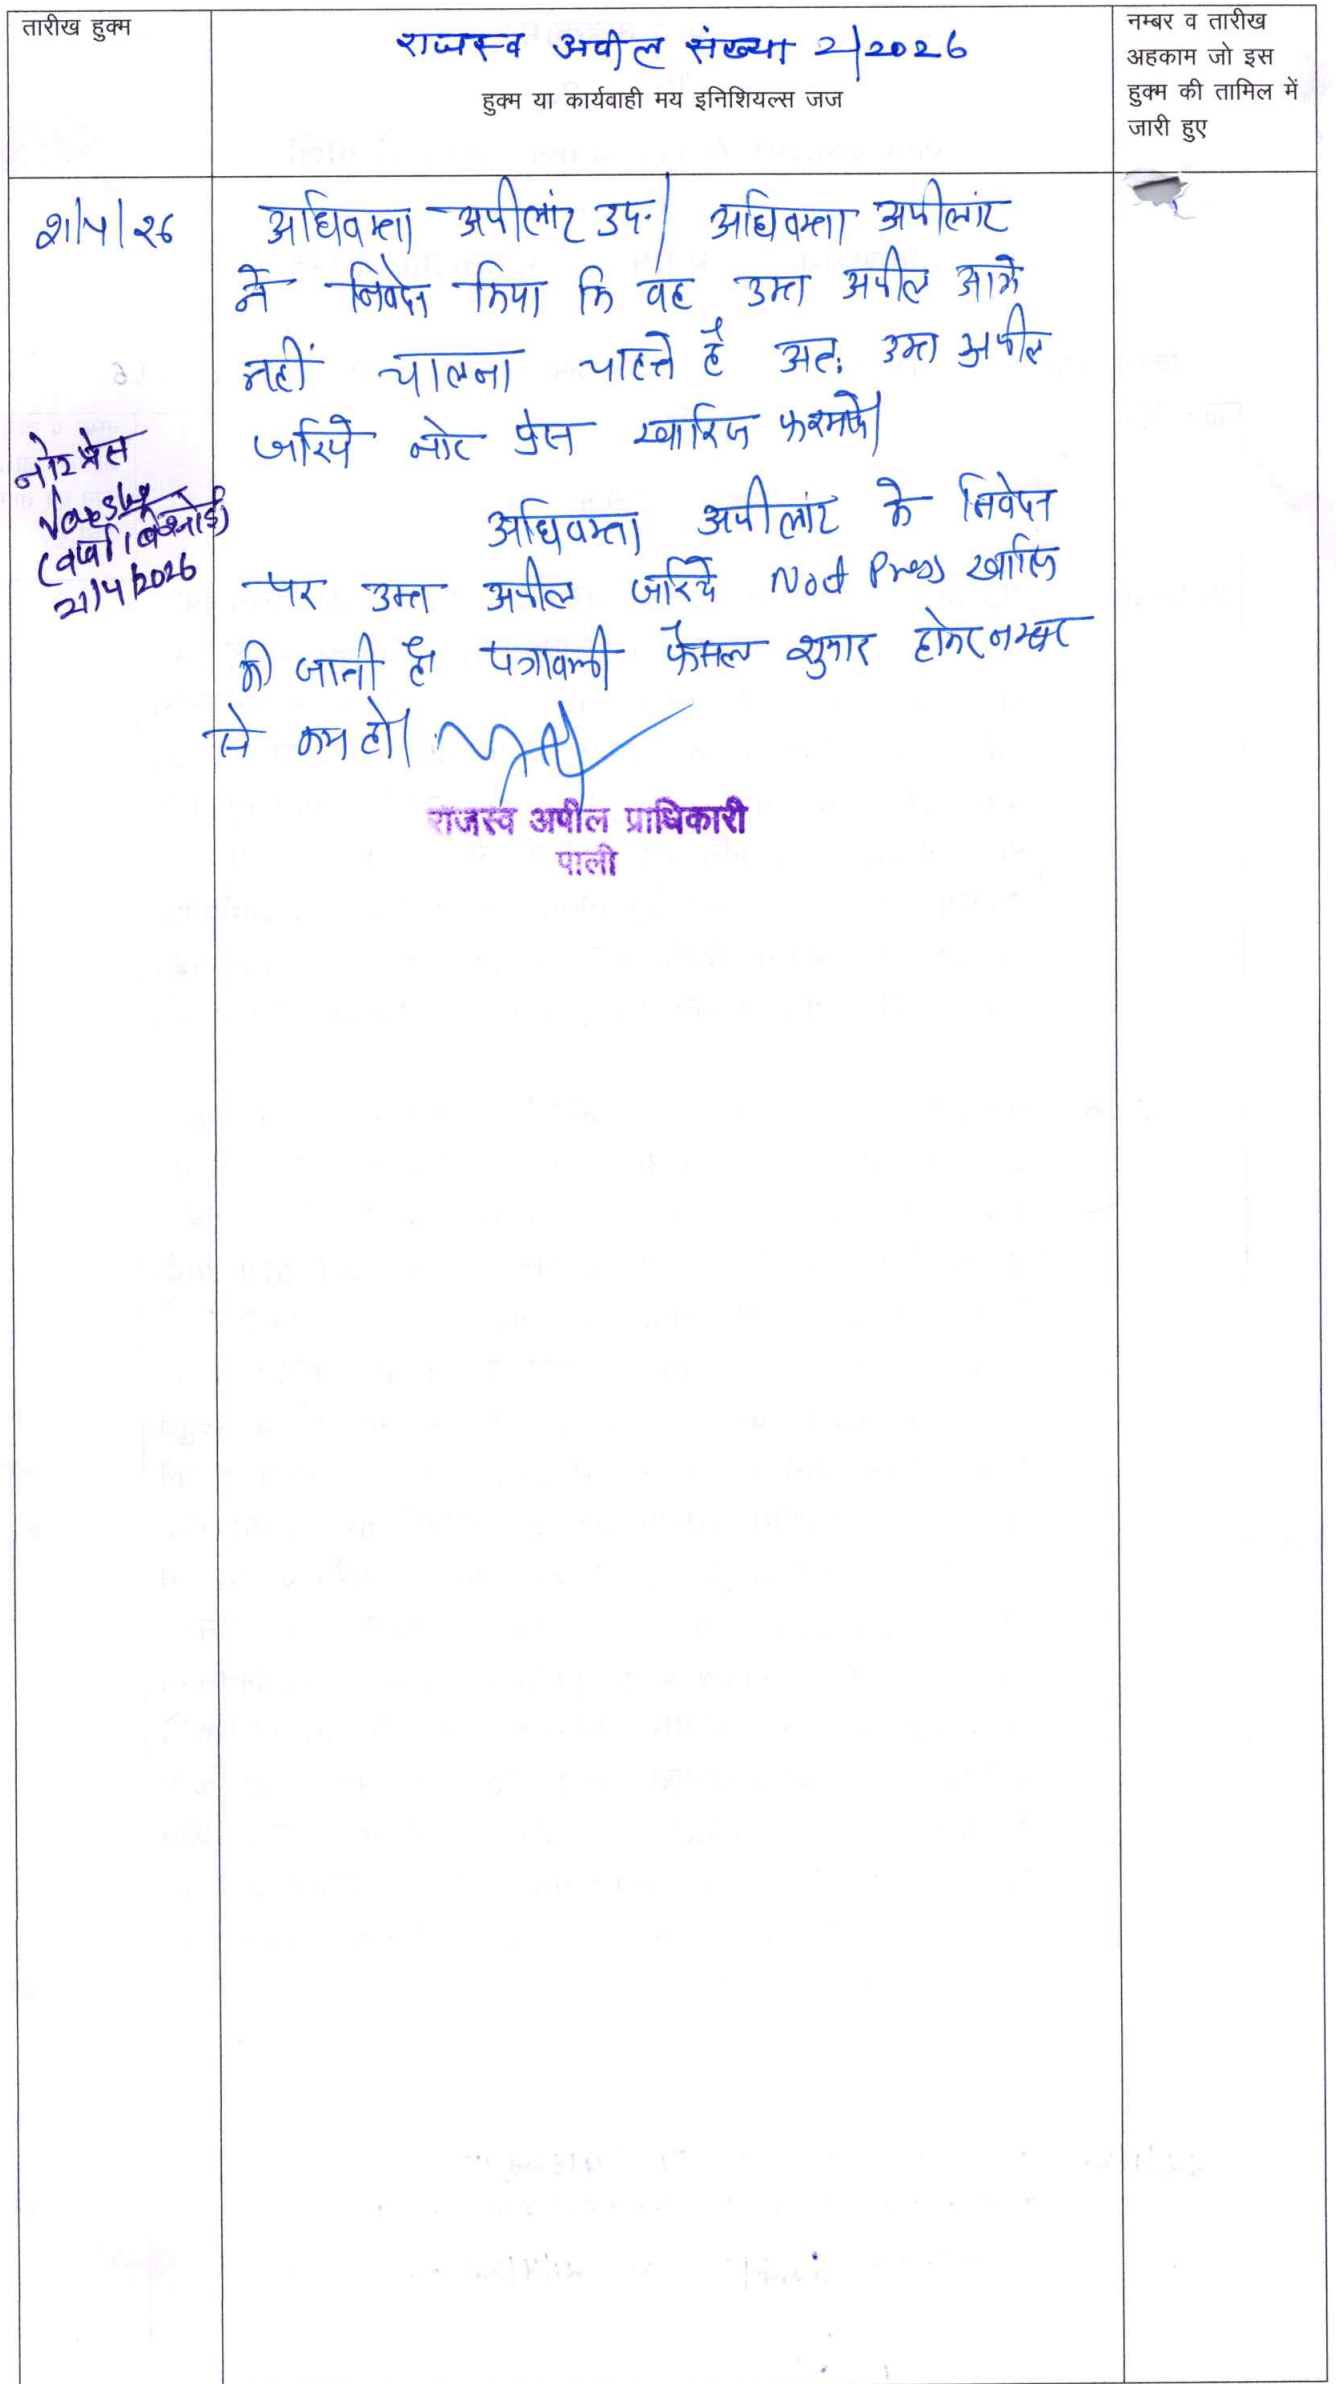 तारीख हुक्म
राजस्व अपील संख्या 2/2026
हुक्म या कार्यवाही मय इनिशियल्स जज
नम्बर व तारीख
अहकाम जो इस
हुक्म की तामिल में
जारी हुए
21/4/26
अधिवक्ता अपीलांट उप.। अधिवक्ता अपीलांट
ने निवेदन किया कि वह उक्त अपील आगे
नहीं चालना चाहते है अत: उक्त अपील
जरिये नोट प्रेस खारिज फरमावे।
नोट प्रेस
21/4/2026
अधिवक्ता अपीलांट के निवेदन
पर उक्त अपील जरिये Not Press खारिज
की जाती है। पत्रावली फैसल शुमार होकर नम्बर
से कम हो।
राजस्व अपील प्राधिकारी
पाली